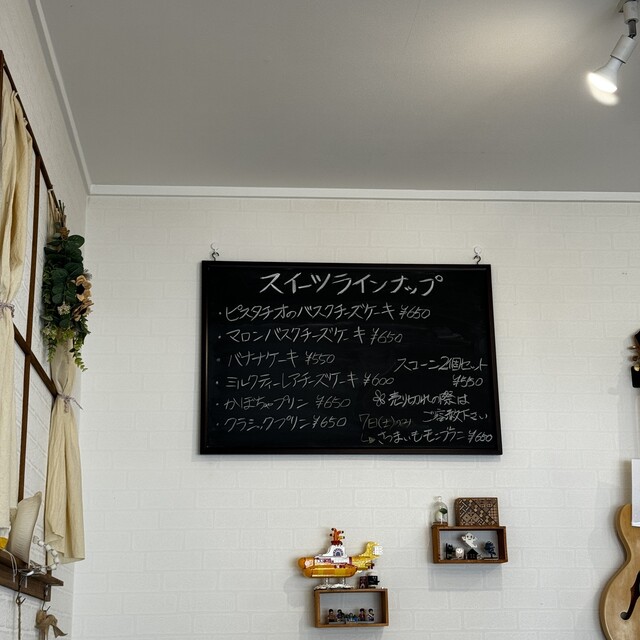 スイーツラインナップ
・ピスタチオのバスクチーズケーキ ¥650
・マロンバスクチーズケーキ ¥650
・バナナケーキ ¥550
・ミルクティーレアチーズケーキ ¥600
・かぼちゃプリン ¥650
・クラシックプリン ¥650
スコーン2個セット
¥550
※売り切れの際は
ご容赦下さい
7日(土)
さつまいもモンブラン ¥600